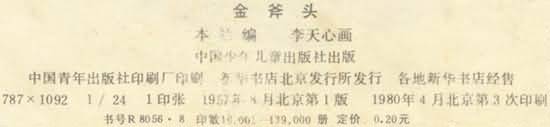 金斧头
本兰编 李天心画
中国少年儿童出版社出版
中国青年出版社印刷厂印刷 新华书店北京发行所发行 各地新华书店经售
787×1092 1/24 1印张 1957年8月北京第1版 1980年4月北京第3次印刷
书号R8056·8 印数10,001—139,000 定价0.20元